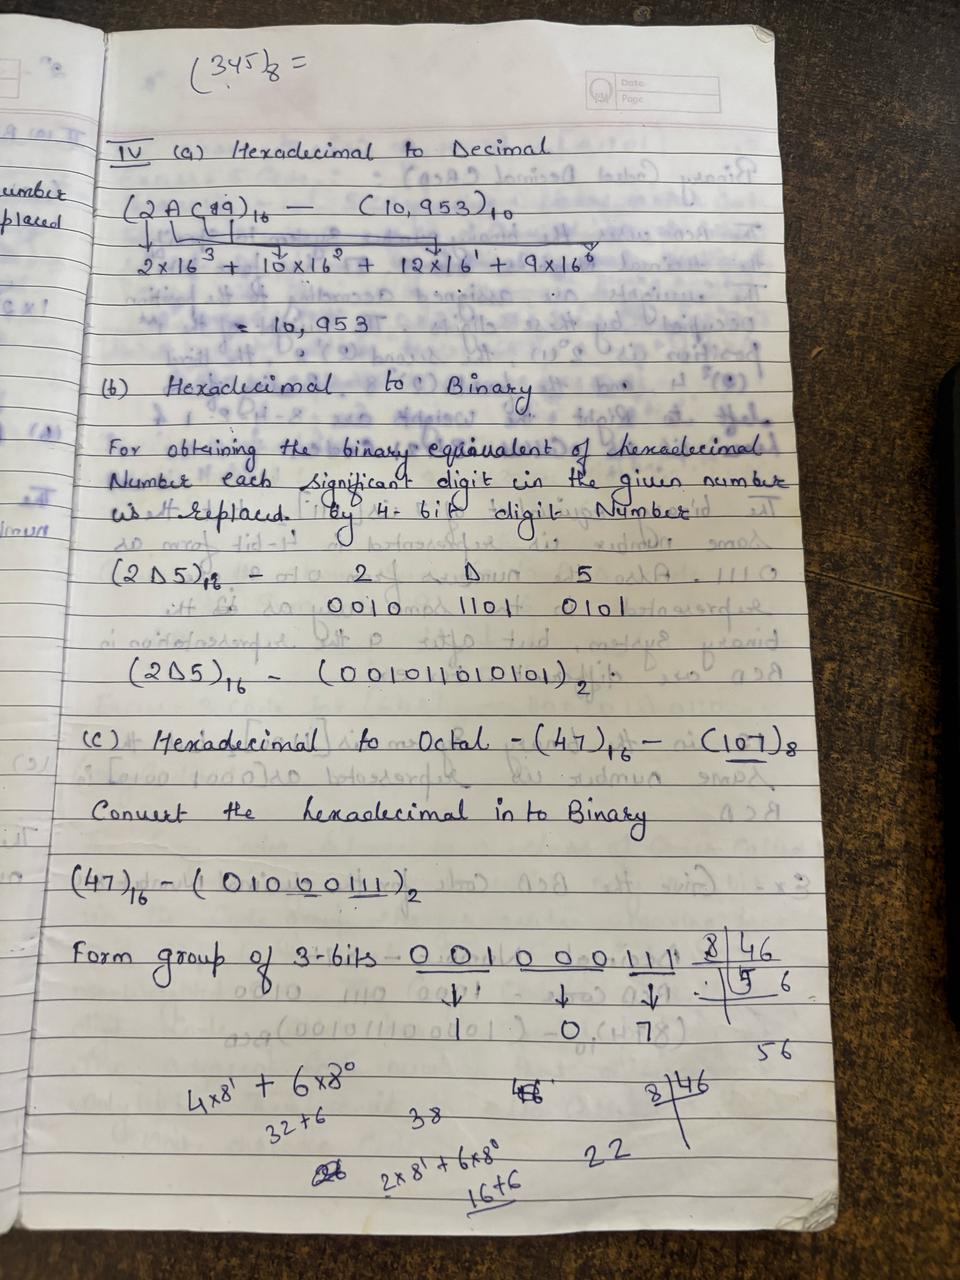 (345)8 =
Date
Page
umber
placed
IV (a) Hexadecimal to Decimal
(2AC9)16 — (10,953)10
2×16³ + 10×16² + 12×16¹ + 9×16⁰
= 10,953
(b) Hexadecimal to Binary
For obtaining the binary equivalent of hexadecimal
Number each significant digit in the given number
is replaced. By 4-bit digit Number
(2D5)16 - 2 D 5
0010 1101 0101
(2D5)16 - (001011010101)2
(C) Hexadecimal to Octal - (47)16 — (107)8
Convert the hexadecimal in to Binary
(47)16 - (01000111)2
Form group of 3-bits 001 000 111
1 0 7
8 46
5 6
56
4×8¹ + 6×8⁰
32+6 38
8 46
2×8¹ + 6×8⁰ 22
16+6